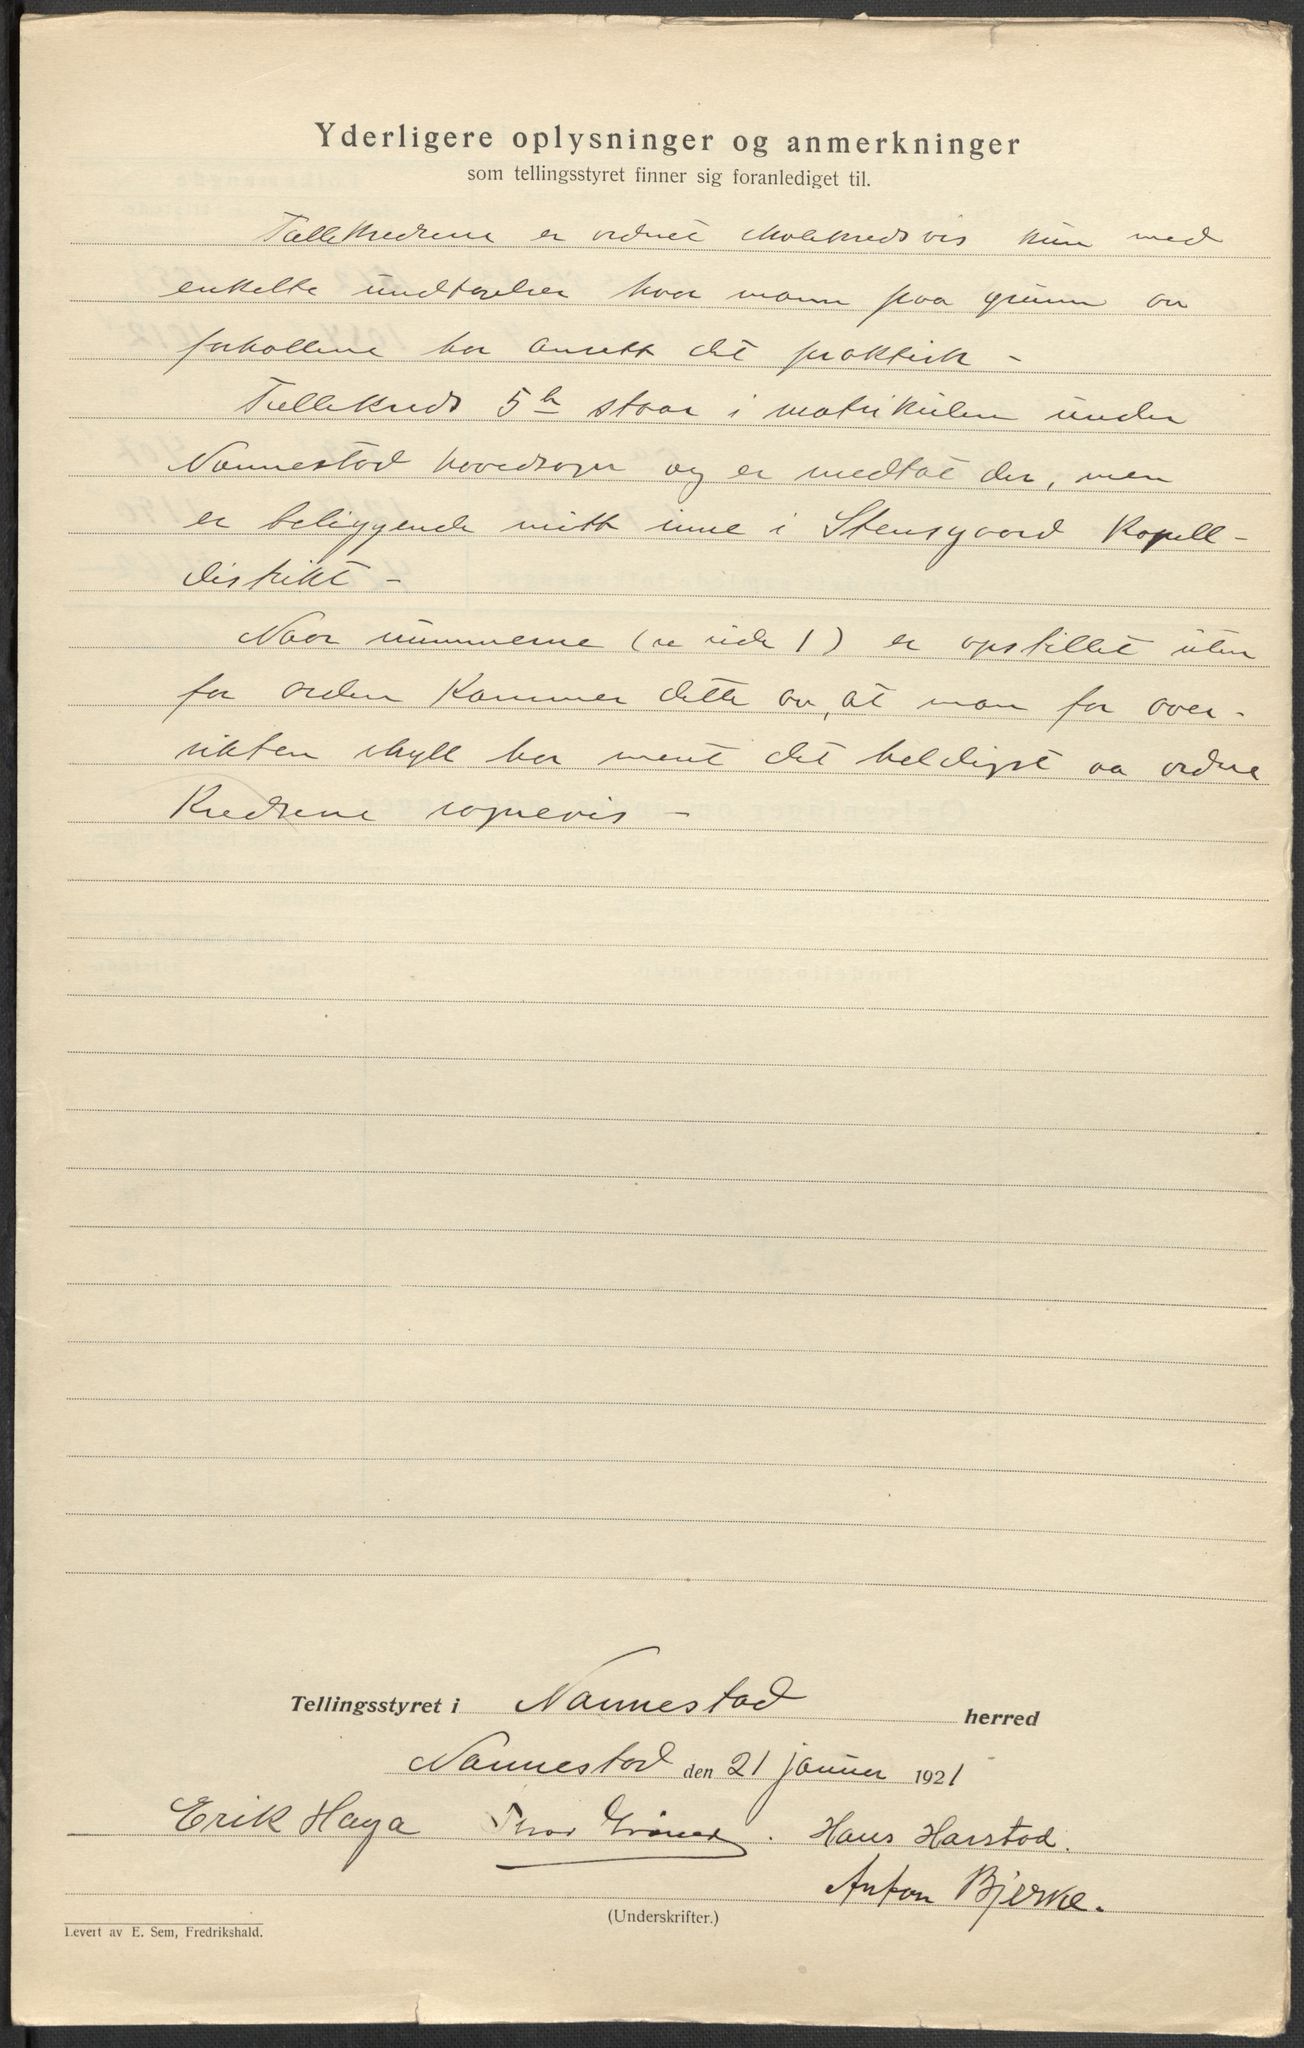 Yderligere oplysninger og anmerkninger
som tellingsstyret finner sig foranlediget til.
Tællekredsene er ordnet skolekredsvis kun med
enkelte undtagelser hvor mann paa grunn av
forhollene har ansett det praktisk –
Tællekreds 5b staar i matrikulen under
Nannestad hovedsogn og er medtat der, men
er beliggende mitt inne i Stensgaard Kapell-
distrikt –
Naar nummerne (se side 1) er opstillet uten
for orden kommer dette av, at man for over-
sikten skyll har ment det heldigst aa ordne
Kredsene sognevis –
Tellingsstyret i Nannestad herred
Nannestad den 21 januar 1921
Erik Haga Thor Hans Harstad.
Anton Bjerke.
(Underskrifter.)
Levert av E. Sem, Fredrikshald.